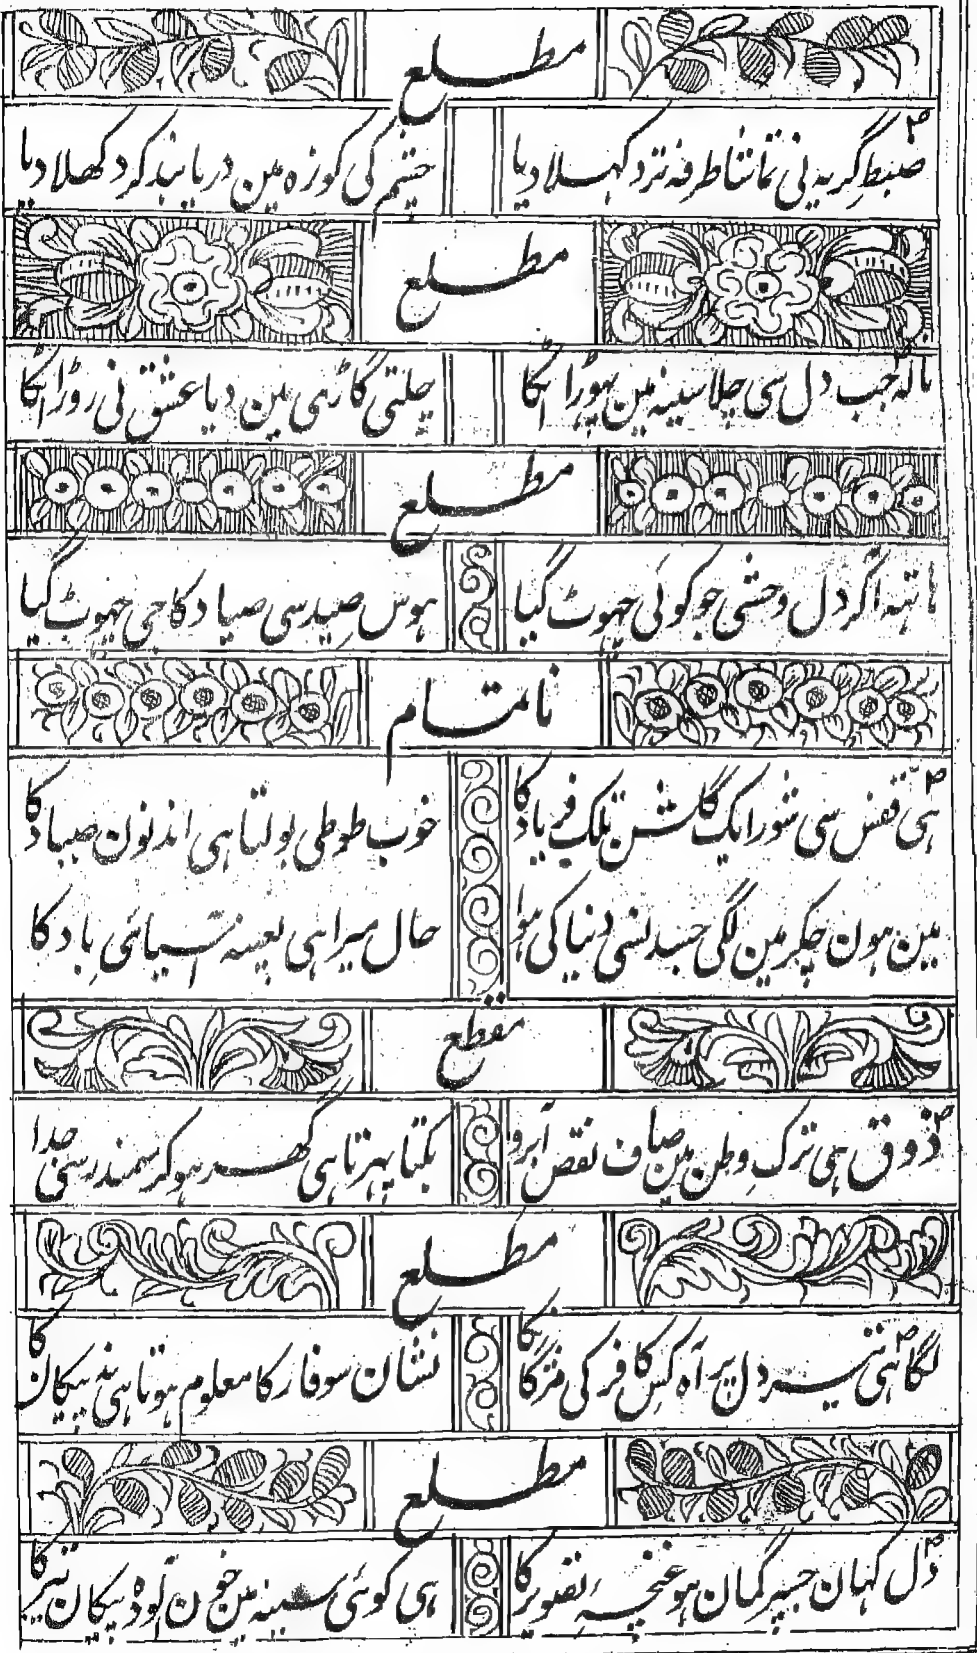 مطلع
ضبطِ گریہ نی تماشا طرفہ تر دکہلا دیا
چشم کی کوزہ مین دریا بند کر دکھلا دیا
مطلع
نالہ جب دل سی چلا سینہ مین پہوڑا اٹکا
چلتی گاڑہی مین دیا عشق نی روڑا اٹکا
مطلع
ہاتہہ اگر دل وحشی جو کوئی چہوٹ گیا
ہوس صید سی صیاد کا جی چہوٹ گیا
ناتمام
ہی قفس سی شور ایک گلشن تلک فریاد کا
خوب طوطی بولتا ہی اندنون صیاد کا
مین ہون چکر مین لگی جسدنسی دنیا کی ہوا
حال میرا ہی بعینہ آسیائی باد کا
مقطع
ذوق ہی ترکِ وطن مین صاف نقص آبرو
بکتا پہرتا ہی گہر ہو کر سمندر سی جدا
مطلع
لگا ہی تیر دل پر آہ کس کافر کی مژگان کا
نشان سوفار کا معلوم ہوتا ہی نہ پیکان کا
مطلع
دل کہان جسپر گمان ہو غنچہ تصویر کا
ہی کوئی سینہ مین خون آلودہ پیکان تیر کا